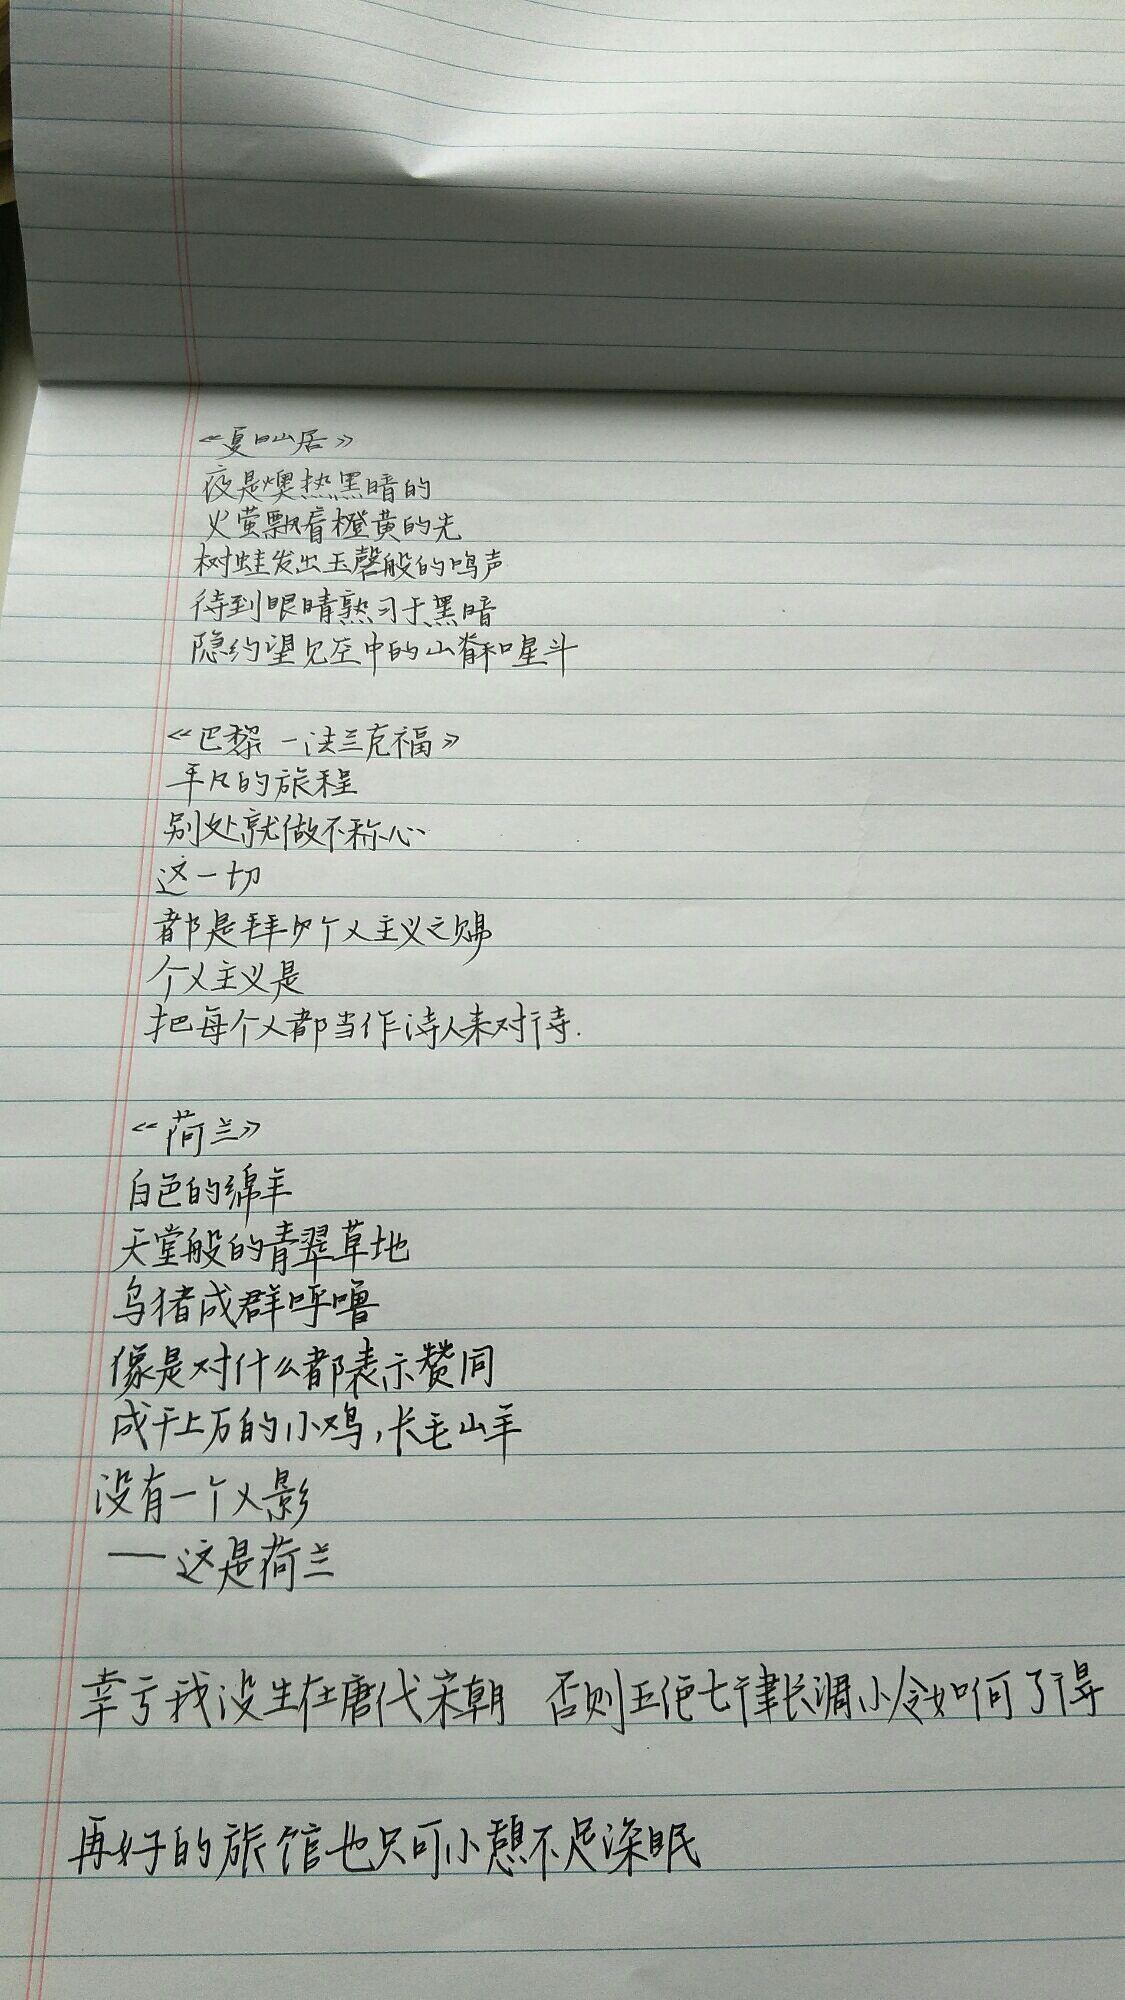 《夏日山居》
夜是燠热黑暗的
火萤飘着橙黄的光
树蛙发出玉磬般的鸣声
待到眼睛熟习于黑暗
隐约望见空中的山脊和星斗
《巴黎—法兰克福》
平凡的旅程
别处就做不称心
这一切
都是拜的个人主义之赐
个人主义是
把每个人都当作诗人来对待.
《荷兰》
白色的绵羊
天堂般的青翠草地
乌猪成群呼噜
像是对什么都表示赞同
成千上万的小鸡,长毛山羊
没有一个人影
——这是荷兰
幸亏我没生在唐代宋朝 否则五绝七律长调小令如何了得
再好的旅馆也只可小憩不足深眠